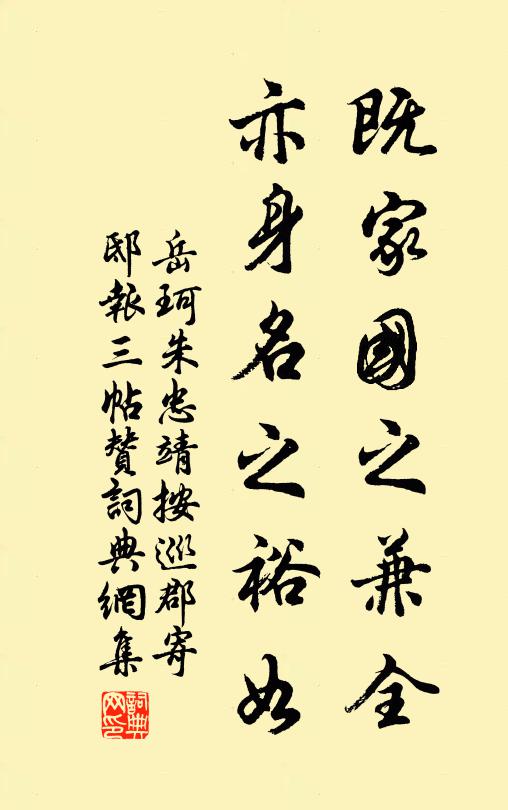 既家國之兼全
亦身名之裕如
岳珂朱忠靖按巡郡寄
邸報三帖贊詞典網集
詞典
网印